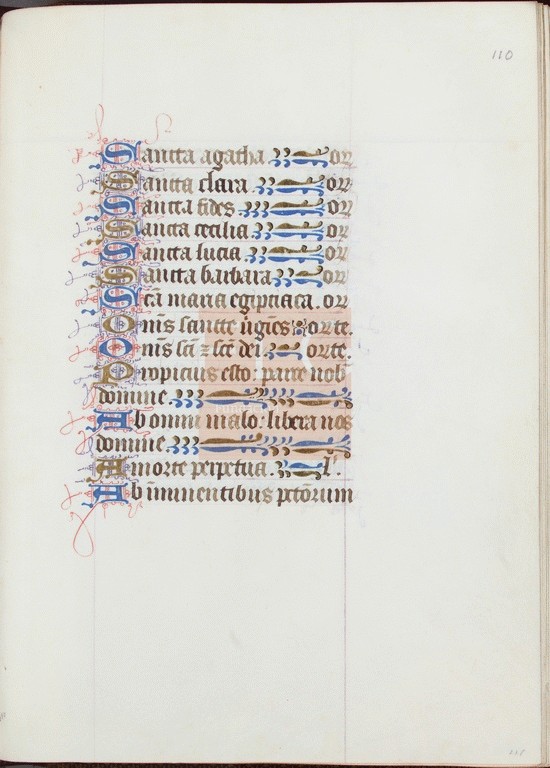 110
Sancta agatha or̄
Sancta clara or̄
Sancta fides or̄
Sancta cecilia or̄
Sancta lucia or̄
Sancta barbara or̄
Scā maria egiptiaca. or̄
Om̄s sancte ūgīes orte.
Om̄s scī z scē dei orte.
Propicius esto: parce nob̄
domine
Ab omni malo: libera nos
domine
A morte perpetua. l'.
Ab īminentibus pctōrum